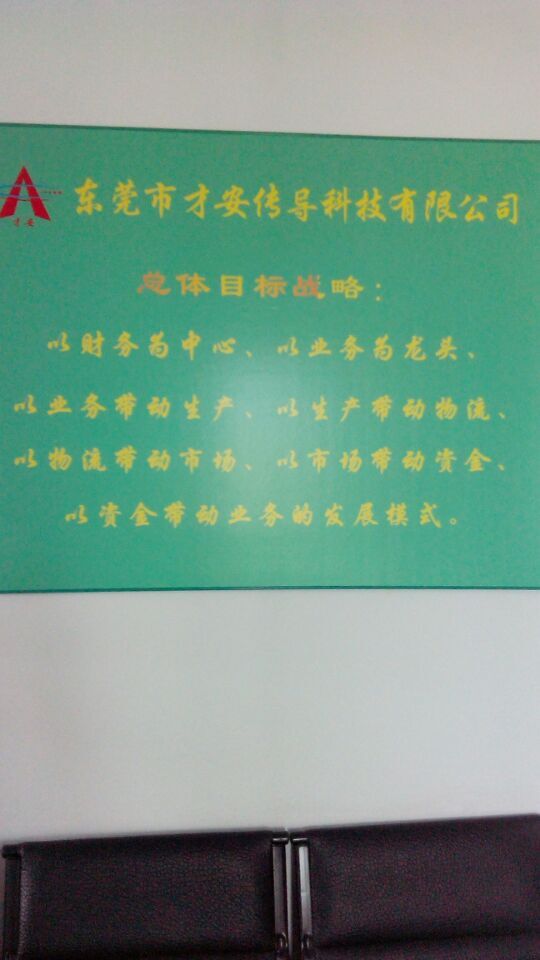 东莞市才安传导科技有限公司
才安
总体目标战略：
以财务为中心、以业务为龙头、
以业务带动生产、以生产带动物流、
以物流带动市场、以市场带动资金、
以资金带动业务的发展模式。